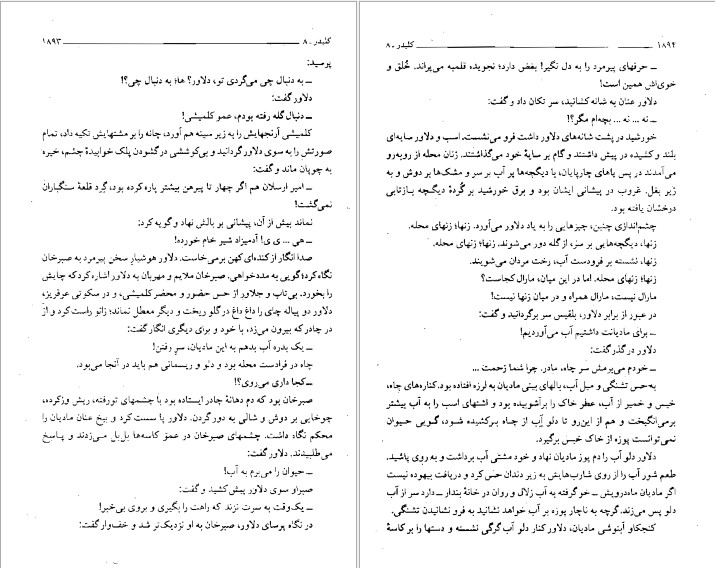 کلیدر ـ ۸ ۱۸۹۳
پرسید:
ــ به دنبال چی می‌گردی تو، دلاور؟ ها؛ به دنبال چی؟!
دلاور گفت:
ــ دنبال گله رفته بودم، عمو کلمیشی!
کلمیشی آرنجهایش را به زیر سینه هم آورد، چانه را بر مشتهایش تکیه داد، تمام
صورتش را به سوی دلاور گردانید و بی‌کوششی در گشودن پلک خوابیدهٔ چشم، خیره
به چوپان ماند و گفت:
ــ امیر ارسلان هم اگر چهار تا پیرهن بیشتر پاره کرده بود، گرد قلعهٔ سنگباران
نمی‌گشت!
نماند بیش از آن، پیشانی بر بالش نهاد و گویه کرد:
ــ هی ... ی ی! آدمیزاد شیر خام خورده!
صدا انگار از کنده‌ای کهن برمی‌خاست. دلاور هوشیار سخن پیرمرد به صبرخان
نگاه کرد؛ گویی به مددخواهی. صبرخان ملایم و مهربان به دلاور اشاره کرد که چایش
را بخورد. بی‌تاب و جلاور از حس حضور و محضر کلمیشی، و در سکوتی عرقریز،
دلاور دو پیاله چای را داغ داغ در گلو ریخت و دیگر معطل نماند؛ زانو راست کرد و از
در چادر که بیرون می‌زد، با خود و برای دیگری انگار گفت:
ــ یک بدره آب بدهم به این مادیان، سر رفتن!
چاه در فرادست محله بود و دلو و ریسمانی هم باید در آنجا می‌بود.
ــ کجا داری می‌روی؟!
صبرخان بود که دم دهانهٔ چادر ایستاده بود با چشمهای تورفته، ریش وزکرده،
چوخایی بر دوش و شالی به دور گردن. دلاور پا سست کرد و بیخ عنان مادیان را
محکم نگاه داشت. چشمهای صبرخان در عمق کاسه‌ها پل‌پل می‌زدند و پاسخ
می‌طلبیدند. دلاور گفت:
ــ حیوان را می‌برم به آب!
صبراو سوی دلاور پیش کشید و گفت:
ــ یک‌وقت به سرت نزند که راهت را بگیری و بروی بی‌خبر!
در نگاه پرسای دلاور، صبرخان به او نزدیک‌تر شد و خف‌وار گفت:
۱۸۹۴ کلیدر ـ ۸
ــ حرفهای پیرمرد را به دل نگیر! بغض دارد؛ نجویده قلمبه می‌پراند. خُلق و
خوی‌اش همین است!
دلاور عنان به شانه کشانید، سر تکان داد و گفت:
ــ نه ... نه ... بچه‌ام مگر؟!
خورشید در پشت شانه‌های دلاور داشت فرو می‌نشست. اسب و دلاور سایه‌ای
بلند و کشیده در پیش داشتند و گام بر سایهٔ خود می‌گذاشتند. زنان محله از روبه‌رو
می‌آمدند در پس پاهای چارپایان، با دیگچه‌ها پر آب بر سر و مشک‌ها بر دوش و به
زیر بغل. غروب در پیشانی ایشان بود و برق خورشید بر گُردهٔ دیگچه بازتابی
درخشان یافته بود.
چشم‌اندازی چنین، چیزهایی را به یاد دلاور می‌آورد. زنها؛ زنهای محله.
زنها، دیگچه‌هایی بر سر، از گله دور می‌شوند. زنها؛ زنهای محله.
زنها، نشسته بر فرودست آب، رخت مردان می‌شویند.
زنها؛ زنهای محله. اما در این میان، مارال کجاست؟
مارال نیست، مارال همراه و در میان زنها نیست!
در عبور از برابر دلاور، بلقیس سر برگردانید و گفت:
ــ برای مادیانت داشتیم آب می‌آوردیم!
دلاور در گذر گفت:
ــ خودم می‌برمش سر چاه، مادر. چرا شما زحمت ...
به حس تشنگی و میل آب، بالهای بینی مادیان به لرزه افتاده بود. کناره‌های چاه،
خیس و خمیر از آب، عطر خاک را برآشوبیده بود و اشتهای اسب را به آب بیشتر
برمی‌انگیخت و هم از این‌رو تا دلو آب از چاه برکشیده شود، گویی حیوان
نمی‌توانست پوزه از خاک خیس برگیرد.
دلاور دلو آب را دم پوز مادیان نهاد و خود مشتی آب برداشت و به روی پاشید.
طعم شور آب را از روی شارب‌هایش به زیر دندان حس کرد و دریافت بیهوده نیست
اگر مادیان ماه‌درویش ــ خوگرفته به آب زلال و روان در خانهٔ بندار ــ دارد سر از آب
دلو پس می‌زند. گرچه به ناچار پوزه بر آب خواهد نشانید به فرو نشانیدن تشنگی.
کنجکاو آبنوشی مادیان، دلاور کنار دلو آب گرگی نشسته و دستها را بر کاسهٔ